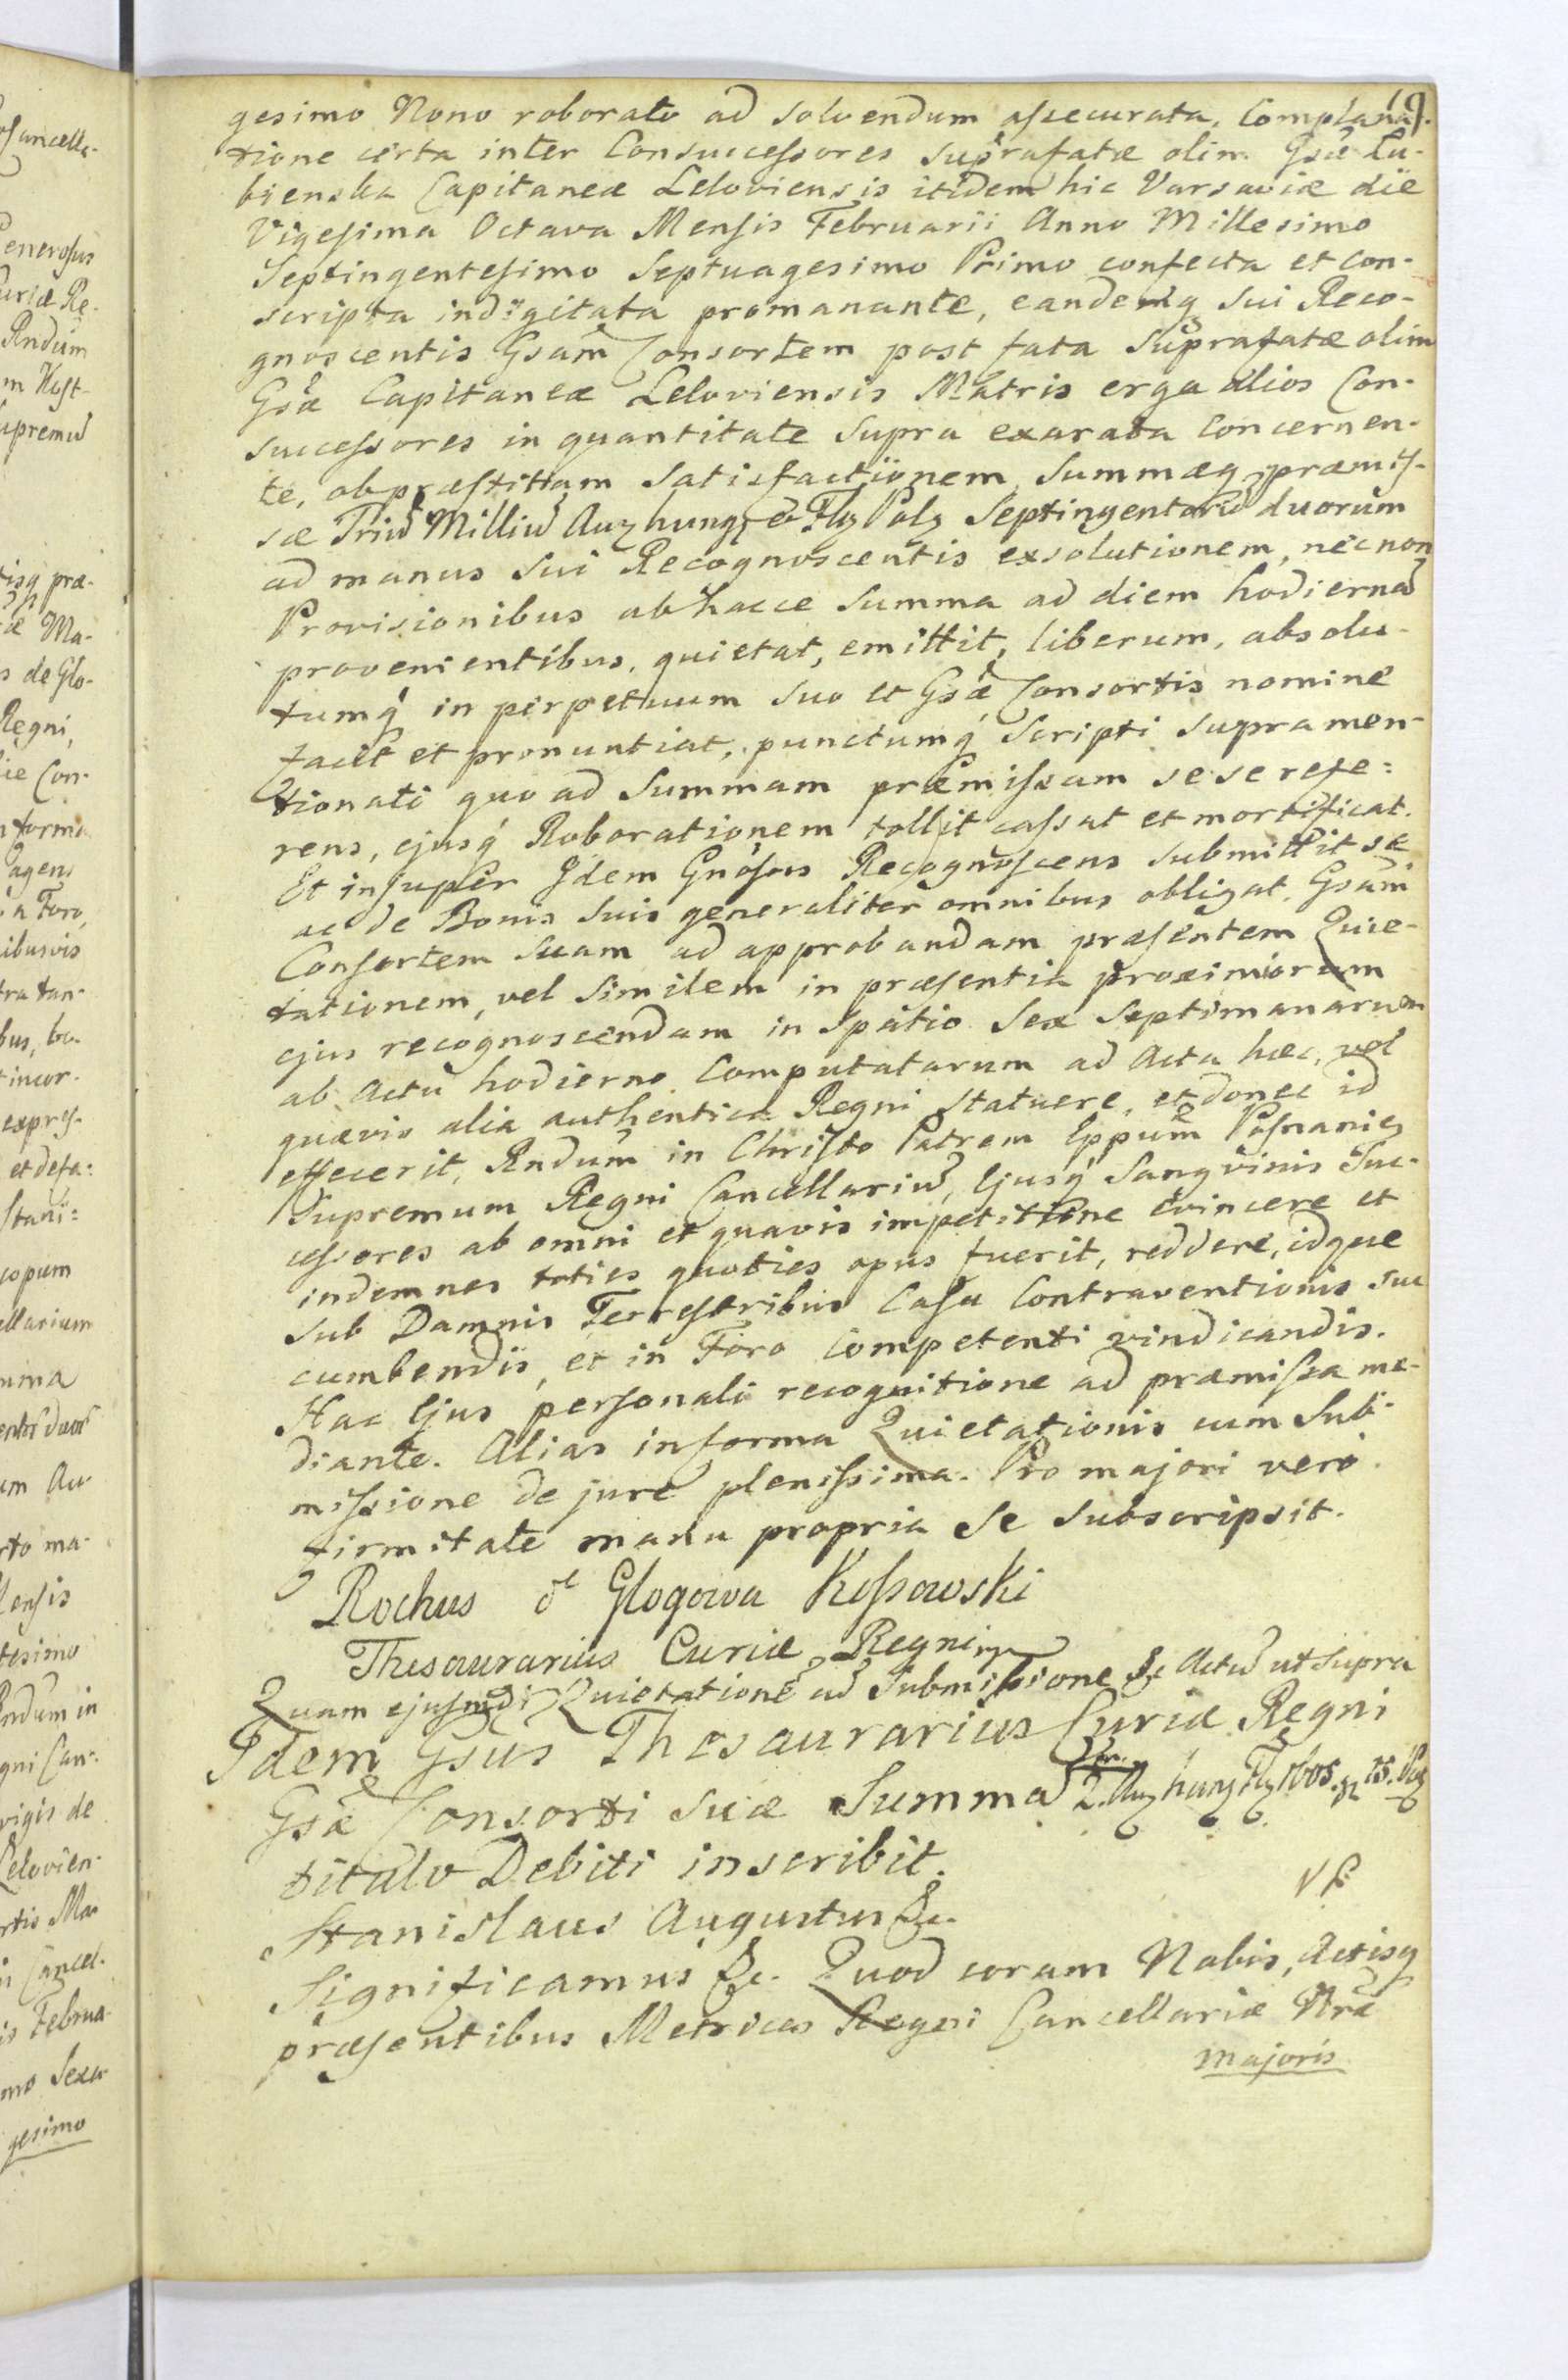 19.
gesimo Nono roborato ad solvendum assecurata, Complana-
tione certa inter Consuccessores suprafatæ olim Gsæ Łu-
bienska Capitaneæ Leloviensis itidem hic Varsaviæ die
Vigesima Octava Mensis Februarii Anno Millesimo
Septingentesimo Septuagesimo Primo confecta et con-
scripta indigitata promanante, eandemq sui Reco-
gnoscentis Gsam Consortem post fata Suprafatæ olim
Gsæ Capitaneæ Leloviensis Matris erga alios Con-
successores in quantitate supra exarata concernen-
te, ob præstitam Satisfactionem, Summæq præmis-
sæ Triũ Milliũ Aur hung et Fl Pol Septingentorũ duorum
ad manus sui Recognoscentis exsolutionem, nec non
Provisionibus ab hacce Summa ad diem hodiernã
provenientibus, quietat, emittit, liberum, absolu-
tumq in perpetuum suo et Gsæ Consortis nomine
facit et pronuntiat, punctumq Scripti supramen-
tionati quo ad Summam præmissam sese refe=
rens, ejusq Roborationem tollit cassat et mortificat.
Et insuper Idem Gnosus Recognoscens submittit se
ac de Bonis suis generaliter omnibus obligat, Gsam
Consortem suam ad approbandam præsentem Quie-
tationem, vel similem in præsentia proximiorum
ejus recognoscendam in spatio Sex Septimanarum
ab actu hodierno computatarum ad Acta hæc, vel
quævis alia authentica Regni statuere, et donec id
effecerit, Rndum in Christo Patrem Eppum Posnanien
Supremum Regni Cancellariũ, Ejusq Sangvinis Suc-
cessores ab omni et quavis impetitione evincere et
indemnes toties quoties opus fuerit, reddere, idque
sub Damnis Terrestribus Casu Contraventionis suc
cumbendis, et in Foro Competenti vindicandis.
Hac Ejus personali recognitione ad præmissa me-
diante. Alias in forma Quietationis cum Sub-
missione de jure plenissima. Pro majori vero
firmitate manu propria se subscripsit.
Rochus de Glogowa Kossowski
Thesaurarius Curiæ Regni mp
Quam ejusmdi Quietationẽ ac Submissione &c Actũ ut supra
Idem Gsus Thesaurarius Curiæ Regni
Gsæ Consorti suæ Summã
titulo Debiti inscribit.
Stanislaus Augustus &c.
Significamus &c. Quod coram Nobis, Actisq
præsentibus Metrices Regni Cancellariæ Nræ
majoris